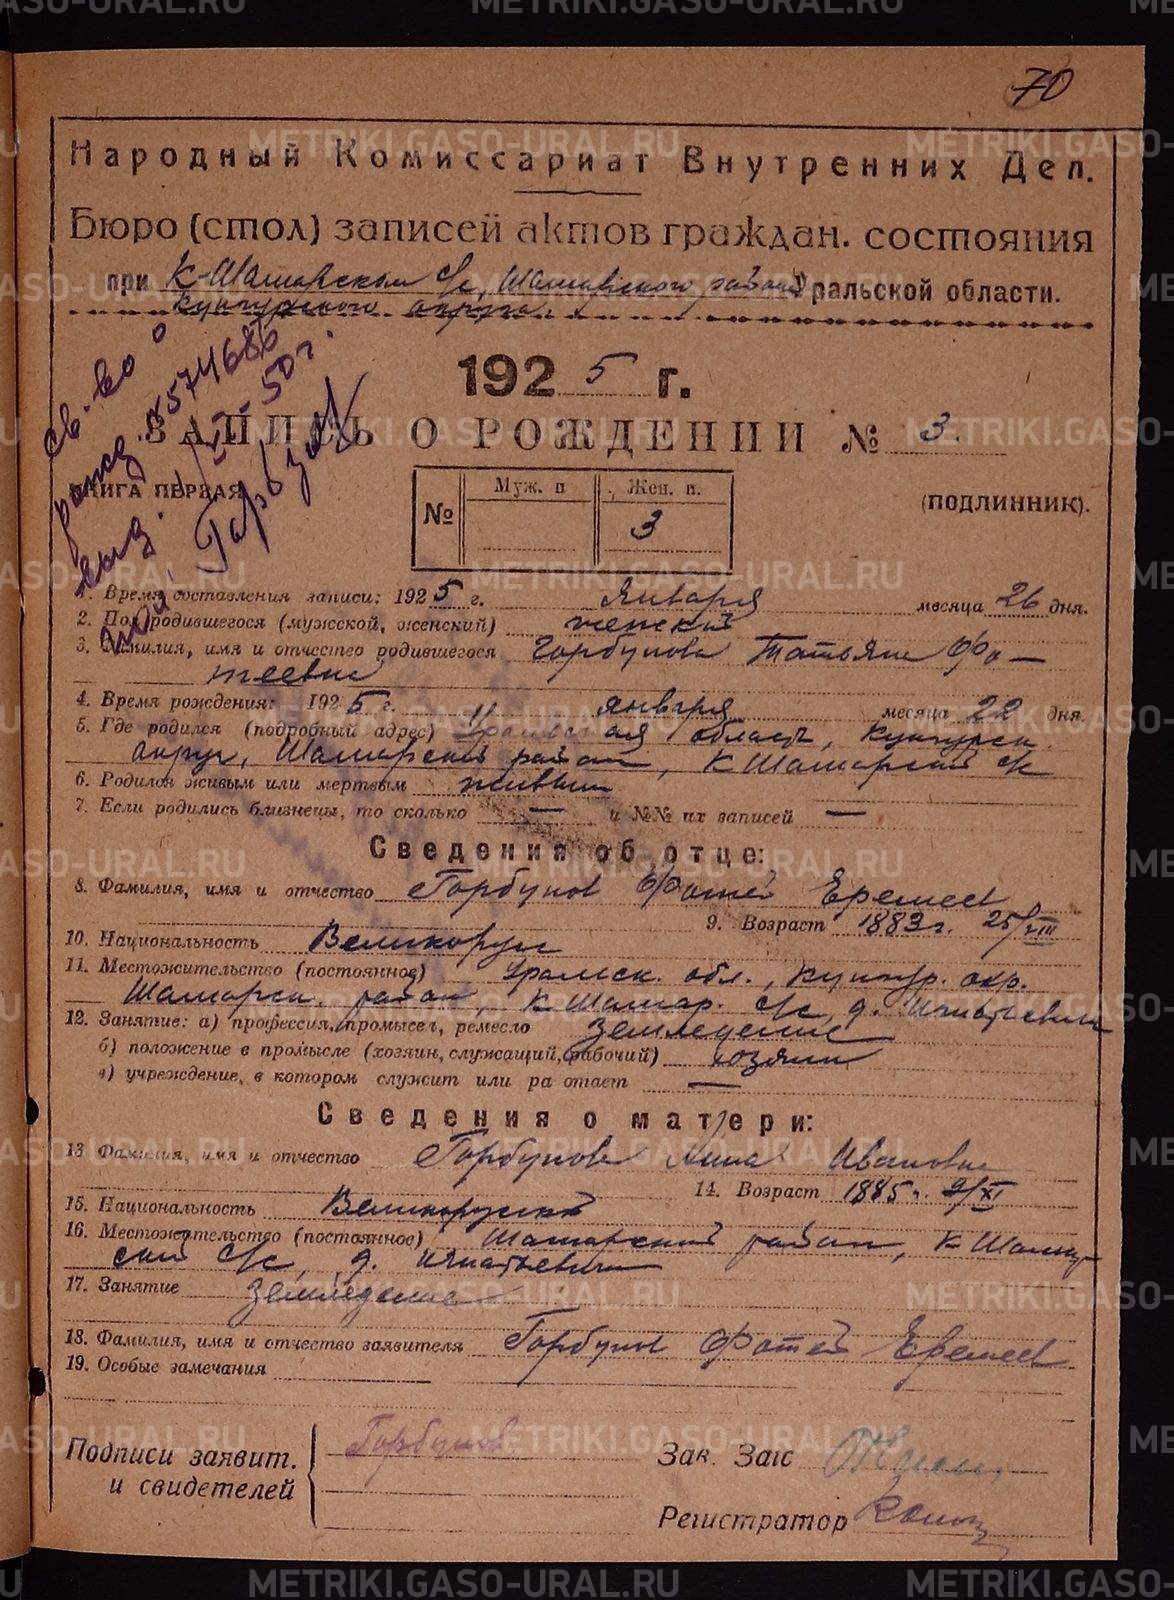 70
Народный Комиссариат Внутренних Дел.
Бюро (стол) записей актов граждан. состояния
при К-Шамарском с/с, Шамарского района Уральской области.
Кунгурского округа.
св. во о
рожд. 574686
выд. 50 г.
Горбунов
1925 г.
ЗАПИСЬ О РОЖДЕНИИ № 3.
КНИГА ПЕРВАЯ
(ПОДЛИННИК).
№ Муж. п. Жен. п.
3
1. Время составления записи: 1925 г. января месяца 26 дня.
2. Пол родившегося (мужской, женский) женский
3. Фамилия, имя и отчество родившегося Горбунова Татьяна Фо-
теевна
4. Время рождения: 1925 г. января месяца 22 дня.
5. Где родился (подробный адрес) Уральская область, Кунгурск.
округ, Шамарский район, К Шамарский с/с
6. Родился живым или мертвым живым
7. Если родились близнецы, то сколько — и №№ их записей —
Сведения об отце:
8. Фамилия, имя и отчество Горбунов Фотей Еремеев
9. Возраст 1883 г. 25/VIII
10. Национальность Великорус
11. Местожительство (постоянное) Уральск. обл., Кунгур. окр.
Шамарск. район, К Шамар. с/с, д. Игнатьевка
12. Занятие: а) профессия, промысел, ремесло земледелие
б) положение в промысле (хозяин, служащий, рабочий) хозяин
в) учреждение, в котором служит или ра отает —
Сведения о матери:
13 Фамилия, имя и отчество Горбунова Анна Ивановна
14. Возраст 1885 г. 2/XI
15. Национальность Великорусская
16. Местожительство (постоянное) Шамарский район, К Шамар
ский с/с, д. Игнатьевка
17. Занятие земледелие
18. Фамилия, имя и отчество заявителя Горбунов Фотей Еремеев
19. Особые замечания
Подписи заявит.
и свидетелей
Горбунов
Зак. Загс
Регистратор
METRIKI.GASO-URAL.RU